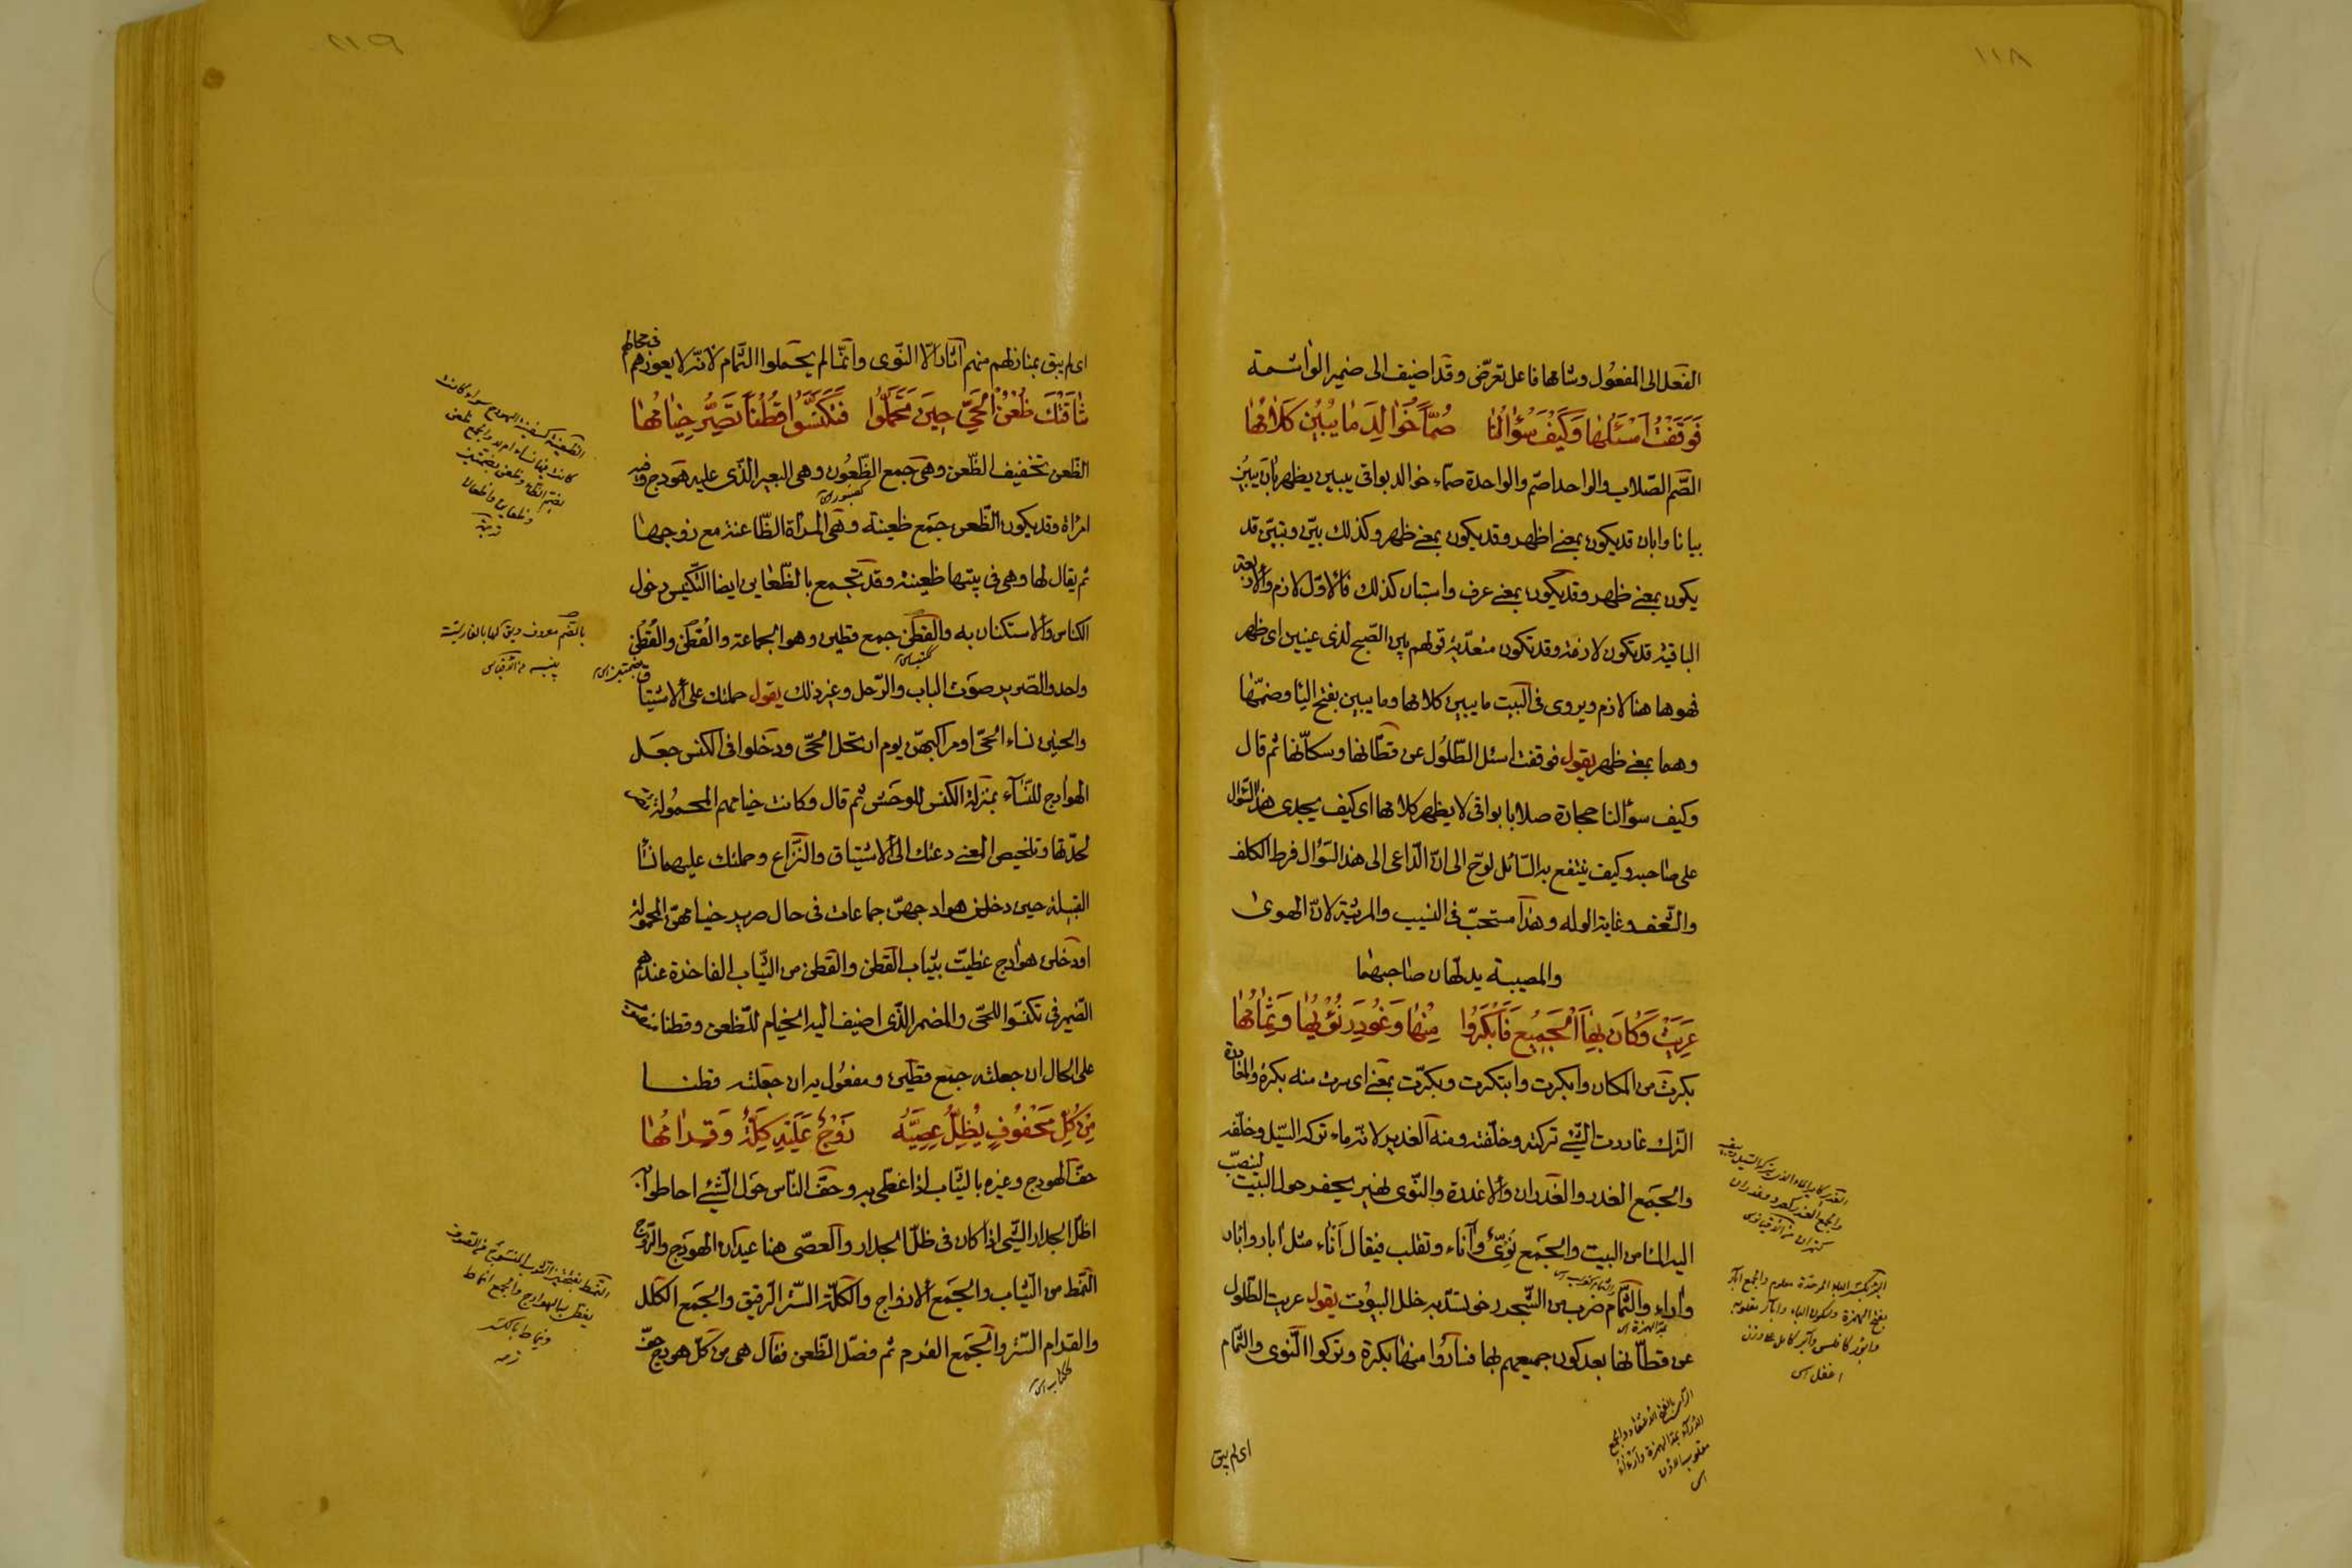 ١١٨
الفعل الى المفعول وشامها فاعل تعرّض وقد اضيف الى ضمير الواشمة
فَوَقَفْتُ اَسْئَلُهٰا وَكَيْفَ سُؤٰالُنٰا صُمّاً خَوٰالِدَ مٰا يُبْيِنُ كَلٰامُهٰا
الصّم الصّلاب والواحد اصّم والواحدة صمّاء خوالد بواقى يبين يظهر بٰان يبين
بيانا وابان قد يكون بمعنے اظهر وقد يكون بمعنے ظهر وكذلك بيّن وتبيّن قد
يكون بمعنے ظهر وقد يكون بمعنے عرف واستبان كذلك فالاوّل لازم والاربعة
الباقية قد تكون لازمة وقد تكون متعدّية قولهم بين الصّبح لذى عينين اى ظهر
فهو هاهنا لازم ويروى فى البيت ما يبين كلامها وما يبين بفتح اليا وضمّها
وهما بمعنے ظهر يقول فوقفت اسئل الطّلول عن قطّانها وسكّانها ثم قال
وكيف سؤالنا حجارة صلابا بواقى لا يظهر كلامها اى كيف يجدى هذا السّؤال
على صٰاحبه وكيف ينتفع به السّائل لوّح الى انّ الدّاعى الى هذا السّؤال فرط الكلف
والشّغف وغاية الوله وهذا مستحبّ فى النسيب والمرثية لانّ الهوى
والمصيبة يدلّهان صٰاحبهمٰا
عَرِيَتْ وَكٰانَ بِهَا الْجَمِيْعُ فَاَبْكَرُوا مِنْهٰا وَغُودِرَ نُؤْيُهٰا وَثُمٰامُهٰا
بكرت من المكان وابكرت وابتكرت وبكّرت بمعنے اى سرت منه بكرة والمغادرة
الترك غادرت الشّئے تركته وخلّفته ومنه الغدير لانّه ماء تركه السّيل وخلّفه
والجمع الغدر والغدران والاغدرة والنّوى نهير يحفر حول البيت لينصبّ
اليه الماء من البيت والجمع نُؤىّ وآناء وتقلب فيقال آناء مثل ابار وابٰار
وآراء والثّمام ضرب من الشّجر رخو يسّد به خلل البيوت يقول عريت الطّلول
عن قطّانها بعد كون جميعهم بها فسٰاروا منها بكرة وتركوا النّوى والثّمام
اى لم يبق
١١٩
اى لم يبق بمنازلهم منهم آثار الّا النّوى وانّما لم يحملوا الثّمام لانّه لا يعوزهم فى محالّهم
شٰاقَتْكَ ظُعْنُ الْحَيِّ حِينَ تَحَمَّلُوا فَتَكَنَّسُوا قُطُناً تَصِرُّ خِيٰامُهٰا
الظّعن تخفيف الظّعن وهى جمع الظّعون وهى البعير الّذى عليه هودج وفيه
امراة وقد يكون الظّعن جمع ظعينة وهى المراة الظّاعنة مع زوجهٰا
ثم يقال لها وهى فى بيتها ظعينة وقد تجمع بالظّعاين ايضا التّكنس دخول
الكناس والاستكنان به والقطن جمع قطين وهو الجماعة والقُطْن والقُطُن
واحد والصّرير صوت الباب والرّحل وغير ذلك يقول حملتك على الاشتياق
والحنين نساء الحىّ او مراكبهنّ يوم ارتحل الحىّ ودخلوا فى الكنس جعل
الهوادج للنّساء بمنزلة الكنس للوحش ثم قال وكانت خيامهم المحمولة تصر
لجدّتها وتلخيص المعنے دعتك الى الاشتياق والنّزاع وحملتك عليهما نسٰاء
القبيلة حين دخلن هوادجهنّ جماعات فى حال صرير خيامهنّ المحمولة
او دخلن هوادج غطيت بثياب القطن والقطن من الثّياب الفاخرة عندهم
الضّمير فى تكنسّوا للحىّ والمضمر الذّى اضيف اليه الخيام للظّعن وقطنا منصوب
على الحال ان جعلته جمع قطين ومفعول به ان جعلته قطنا
مِنْ كُلِّ مَحْفُوفٍ يُظِلُّ عِصِيَّهُ زَوْجٌ عَلَيْهِ كِلَّةٌ وَقِرٰامُهٰا
حفّ الهودج وغيره بالثّياب اذا غطّى به وحفّ النّاس حول الشّئے احاطوا به
اظلّ الجدار الشّى اذا كان فى ظلّ الجدار والعصّى هنا عيدان الهودج والزّوج
النّمط من الثّياب والجمع الازواج والكلّة السّتر الرّقيق والجمع الكلل
والقرام السّتر والجمع القرم ثم فصّل الظّعن فقال هى من كلّ هودج حفّ